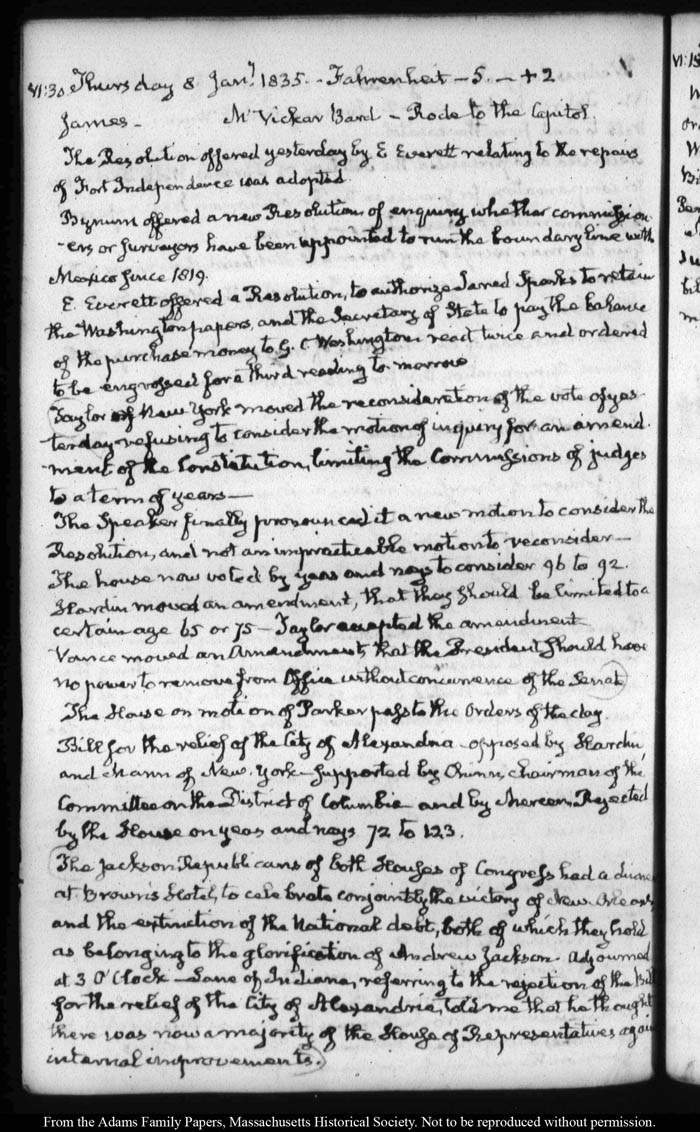 VI:30 Thursday 8 Jany. 1835. - Fahrenheit - 5. - + 2
James - McVickar Bard - Rode to the Capitol.
The Resolution offered yesterday by E Everett relating to the repairs
of Fort Independence was adopted
Bynum offered a new Resolution of enquiry whether commission-
-ers or surveyors have been appointed to run the boundary line with
Mexico since 1819.
E. Everett offered a Resolution, to authorize Jared Sparks to retain
the Washington papers, and the Secretary of State to pay the balance
of the purchase money to G. C Washington read twice and ordered
to be engrossed for a third reading to-morrow
(Taylor of New York moved the reconsideration of the vote of yes-
terday refusing to consider the motion of inquiry for an amend-
-ment of the Constitution, limiting the Commissions of judges
to a term of years—
The Speaker finally pronounced it a new motion to consider the
Resolution, and not an impracticable motion to reconsider—
The house now voted by yeas and nays to consider 96 to 92.
Hardin moved an amendment, that they should be limited to a
certain age 65 or 75— Taylor accepted the amendment
Vance moved an Amendment, that the President should have
no power to remove from Office without concurrence of the Senate)
The House on motion of Parker pass to the Orders of the day.
Bill for the relief of the City of Alexandria - opposed by Hardin,
and Mann of New-York— supported by Chinn, chairman of the
Committee on the District of Columbia and by Mercer. Rejected
by the House on yeas and nays 72 to 123.
(The Jackson Republicans of both Houses of Congress had a dinner
at Brown's Hotel, to celebrate conjointly, the victory of New Orleans
and the extinction of the National debt, both of which they hold
as belonging to the glorification of Andrew Jackson. Adjourned
at 3 O'Clock - Lane of Indiana, referring to the rejection of the Bill
for the relief of the City of Alexandria, told me that he thought
there was now a majority of the House of Representatives again
internal improvements.)
VI:15
From the Adams Family Papers, Massachusetts Historical Society. Not to be reproduced without permission.